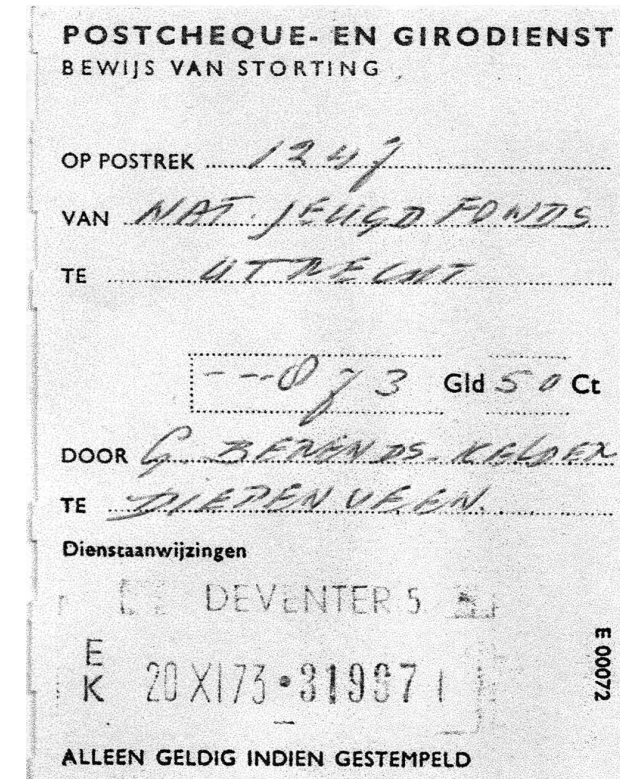 POSTCHEQUE- EN GIRODIENST
BEWIJS VAN STORTING
OP POSTREK 1247
VAN NAT. JEUGD FONDS
TE UTRECHT
---873 Gld 50 Ct
DOOR G. BERENDS-KELDER
TE DIEPENVEEN.
Dienstaanwijzingen
DEVENTER 5
E
K 20 XI 73 • 31967
E 00072
ALLEEN GELDIG INDIEN GESTEMPELD